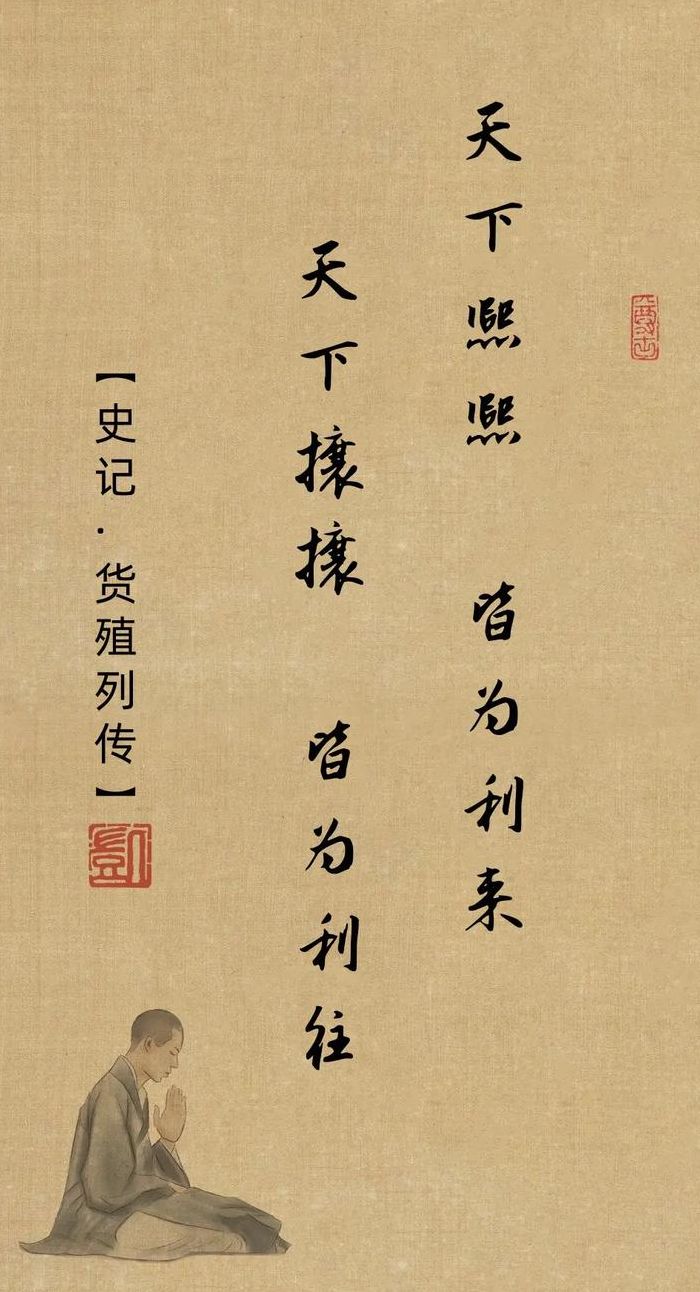 天下熙熙 皆为利来
天下攘攘 皆为利往
【史记·货殖列传】
凯